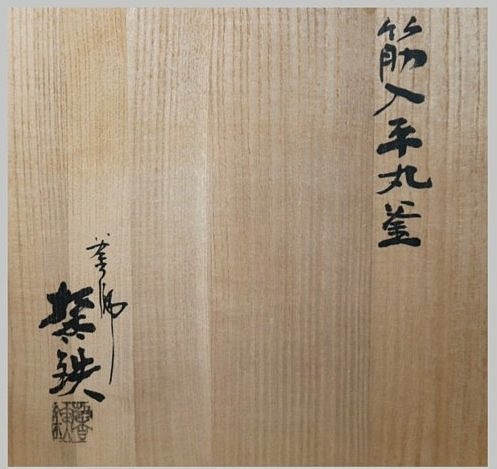 筋入平丸釜
釜師
鉄